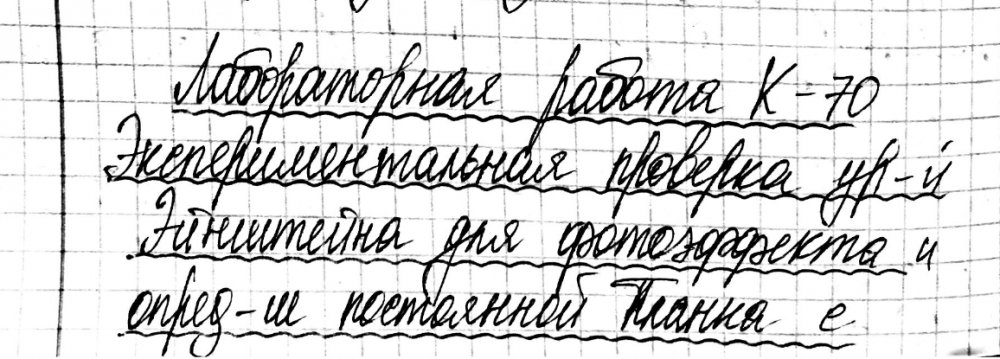 Лабораторная работа К-70
Экспериментальная проверка ур-й
Эйнштейна для фотоэффекта и
опред-ие постоянной Планка с